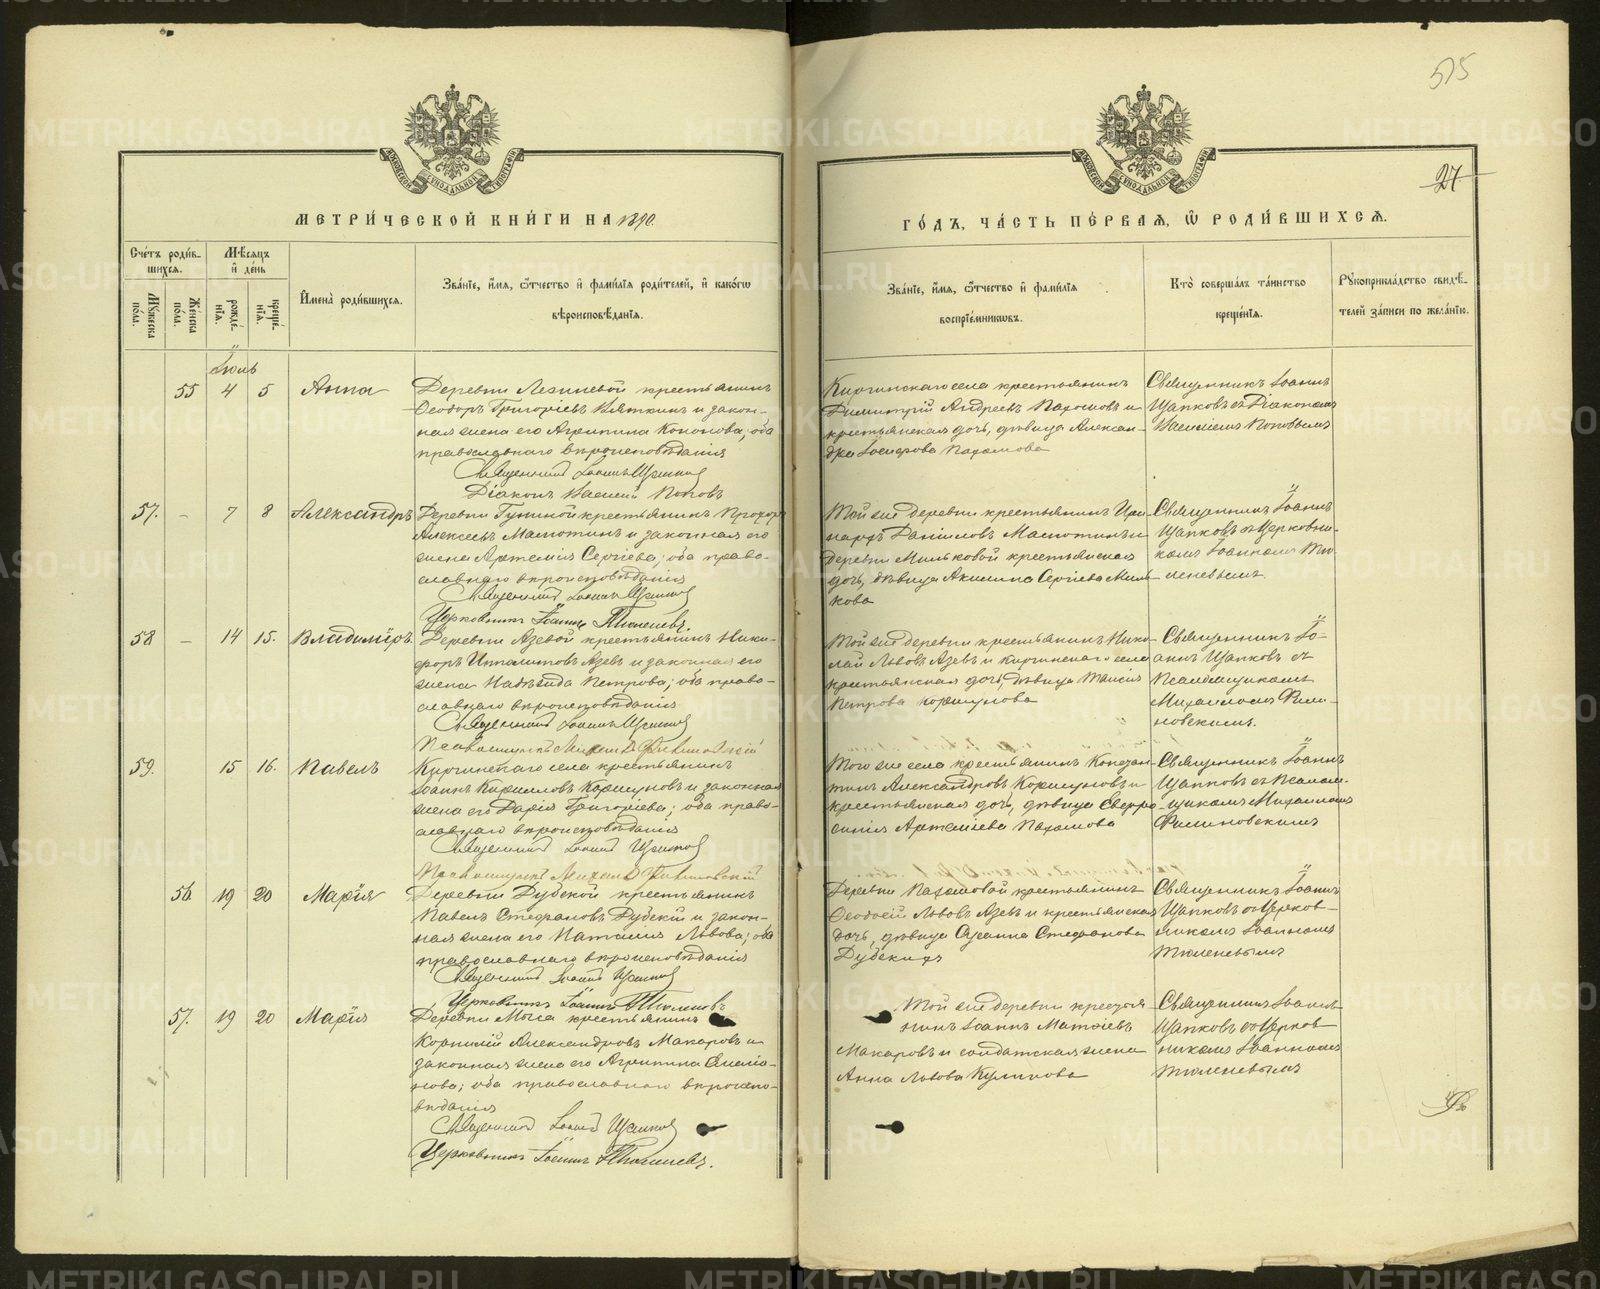 515
27
МЕТРИ́ЧЕСКОЙ КНИ́ГИ НА 1890.
ГО́ДЪ, ЧА́СТЬ ПЕ́РВАЯ, Ѡ҆ РОДИ́ВШИХСЯ.
Сче́тъ роди́в-
шихся.
Мꙋ́жеска по́ла.
Же́нска по́ла.
Мѣ́сяцъ
и҆ де́нь
рожде́-нїя.
креще́-нїя.
И҆мена̀ роди́вшихся.
Зва́нїе, и҆́мя, ѻ҆́тчество и҆ фами́лїя роди́телей, и҆ како́гѡ
вѣроисповѣ́данїя.
Зва́нїе, и҆́мя, ѻ҆́тчество и҆ фами́лїя
воспрїе́мникѡвъ.
Кто̀ соверша́лъ та́инство
креще́нїя.
Рꙋкоприкла́дство свидѣ́-
телей за́писи по жела́нїю.
Іюль
55 4 5 Анна
Деревни Лезиневой крестьянинъ
Ѳеодоръ Григоріевъ Вяткинъ и закон-
ная жена его Агрипина Кононова; оба
православнаго вѣроисповѣданія
Священникъ Іоаннъ Щапковъ
Діаконъ Василій Поповъ
Киргинскаго села крестьянинъ
Димитрій Андреевъ Пахомовъ и
крестьянская дочь, дѣвица Алексан-
дра Іосифова Пахомова
Священникъ Іоаннъ
Щапковъ съ Діакономъ
Василіемъ Поповымъ
57. - 7 8 Александръ
Деревни Гуниной крестьянинъ Прохоръ
Алексѣевъ Масютинъ и законная его
жена Артемія Сергіева; оба право-
славнаго вѣроисповѣданія
Священникъ Іоаннъ Щапковъ
Церковникъ Іоаннъ Тюленевъ.
Той же деревни крестьянинъ
Даниловъ Масютинъ и
деревни Мильковой крестьянская
дочь, дѣвица Акилина Сергіева Миль-
кова
Священникъ Іоаннъ
Щапковъ съ Церковни-
комъ Іоанномъ Тю-
леневымъ
58 - 14 15. Владиміръ
Деревни Азевой крестьянинъ Ники-
форъ Ипполитовъ Азевъ и законная его
жена Надежда Петрова; оба право-
славнаго вѣроисповѣданія
Священникъ Іоаннъ Щапковъ
Псаломщикъ Михаилъ
Той же деревни крестьянинъ Нико-
лай Львовъ Азевъ и Киргинскаго села
крестьянская дочь, дѣвица Таисія
Петрова Коршунова
Священникъ Іо-
аннъ Щапковъ съ
Псаломщикомъ
Михаиломъ Фили-
новскимъ.
59. 15 16. Павелъ
Киргинскаго села крестьянинъ
Іоаннъ Кирилловъ Коршуновъ и законная
жена его Дарія Григоріева; оба право-
славнаго вѣроисповѣданія
Священникъ Іоаннъ Щапковъ
Псаломщикъ Михаилъ
Того же села крестьянинъ Констан-
тинъ Александровъ Коршуновъ и
крестьянская дочь, дѣвица Евфро-
синія Артеміева Пахомова
Священникъ Іоаннъ
Щапковъ съ Псалом-
щикомъ Михаиломъ
Филиновскимъ
56 19 20 Марія
Деревни Дубской крестьянинъ
Павелъ Стефановъ Дубскій и закон-
ная жена его Наталія Львова; оба
православнаго вѣроисповѣданія
Священникъ Іоаннъ Щапковъ
Церковникъ Іоаннъ Тюленевъ
Деревни Пахомовой крестьянинъ
Ѳеодосій Львовъ Азевъ и крестьянская
дочь, дѣвица Сусанна Стефанова
Дубскихъ
Священникъ Іоаннъ
Щапковъ съ Церков-
никомъ Іоанномъ
Тюленевымъ
57. 19 20 Марія
Деревни Мыса крестьянинъ
Корнилій Александровъ Макаровъ и
законная жена его Агрипина Емелья-
нова; оба православнаго вѣроиспо-
вѣданія
Священникъ Іоаннъ Щапковъ
Церковникъ Іоаннъ Тюленевъ.
Той же деревни крестья-
нинъ Іоаннъ Матѳіевъ
Макаровъ и солдатская жена
Анна Львова Куликова
Священникъ Іоаннъ
Щапковъ съ Церков-
никомъ Іоанномъ
Тюленевымъ
METRIKI.GASO-URAL.RU